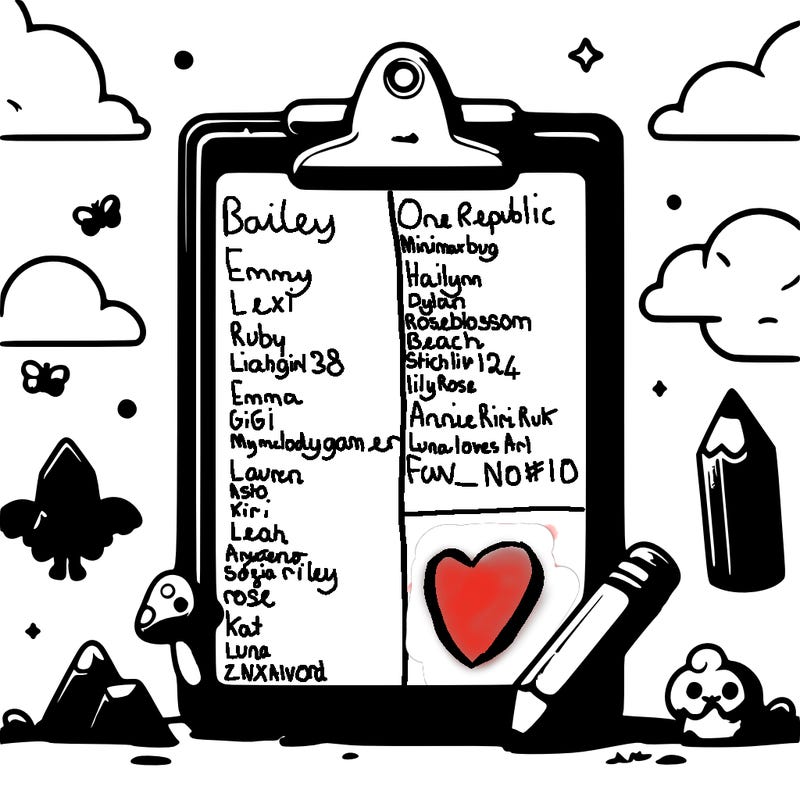 Bailey
Emmy
Lexi
Ruby
Liahgirl38
Emma
GiGi
Mymelodygamer
Lauren
Asto
Kiri
Leah
riley
rose
Kat
Luna
ZNXAlvord
One Republic
Minimaxbug
Hailynn
Dylan
Roseblossom
Beach
Stichliv124
lilyRose
Annie Riri Ruk
Luna loves Art
Fun_No#10